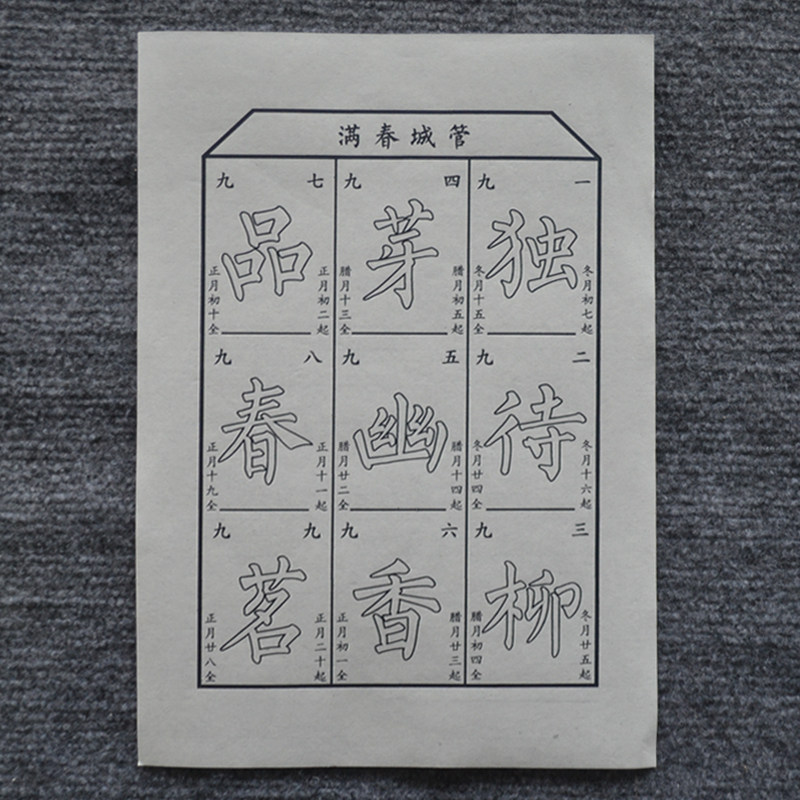 管城春满
一九
独
冬月初七起
冬月十五全
二九
待
冬月十六起
冬月廿四全
三九
柳
冬月廿五起
臘月初四全
四九
芽
臘月初五起
臘月十三全
五九
幽
臘月十四起
臘月廿二全
六九
香
臘月廿三起
正月初一全
七九
品
正月初二起
正月初十全
八九
春
正月十一起
正月十九全
九九
茗
正月二十起
正月廿八全